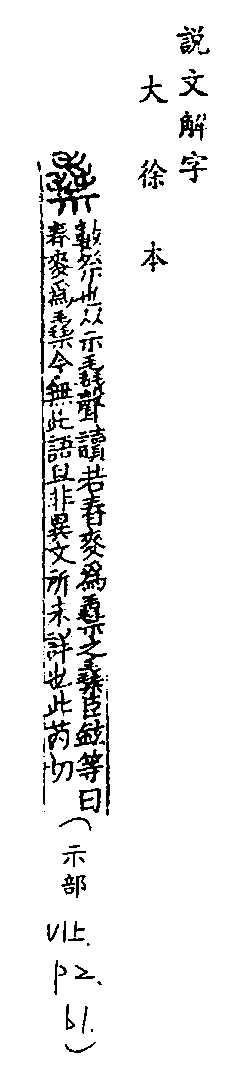 說文解字
大徐本
數祭也从示毳聲讀若舂麥爲之臣鉉等曰
舂麥爲今無此語且非異文所未詳也此芮切
(示部 V1上. p2. b1.)